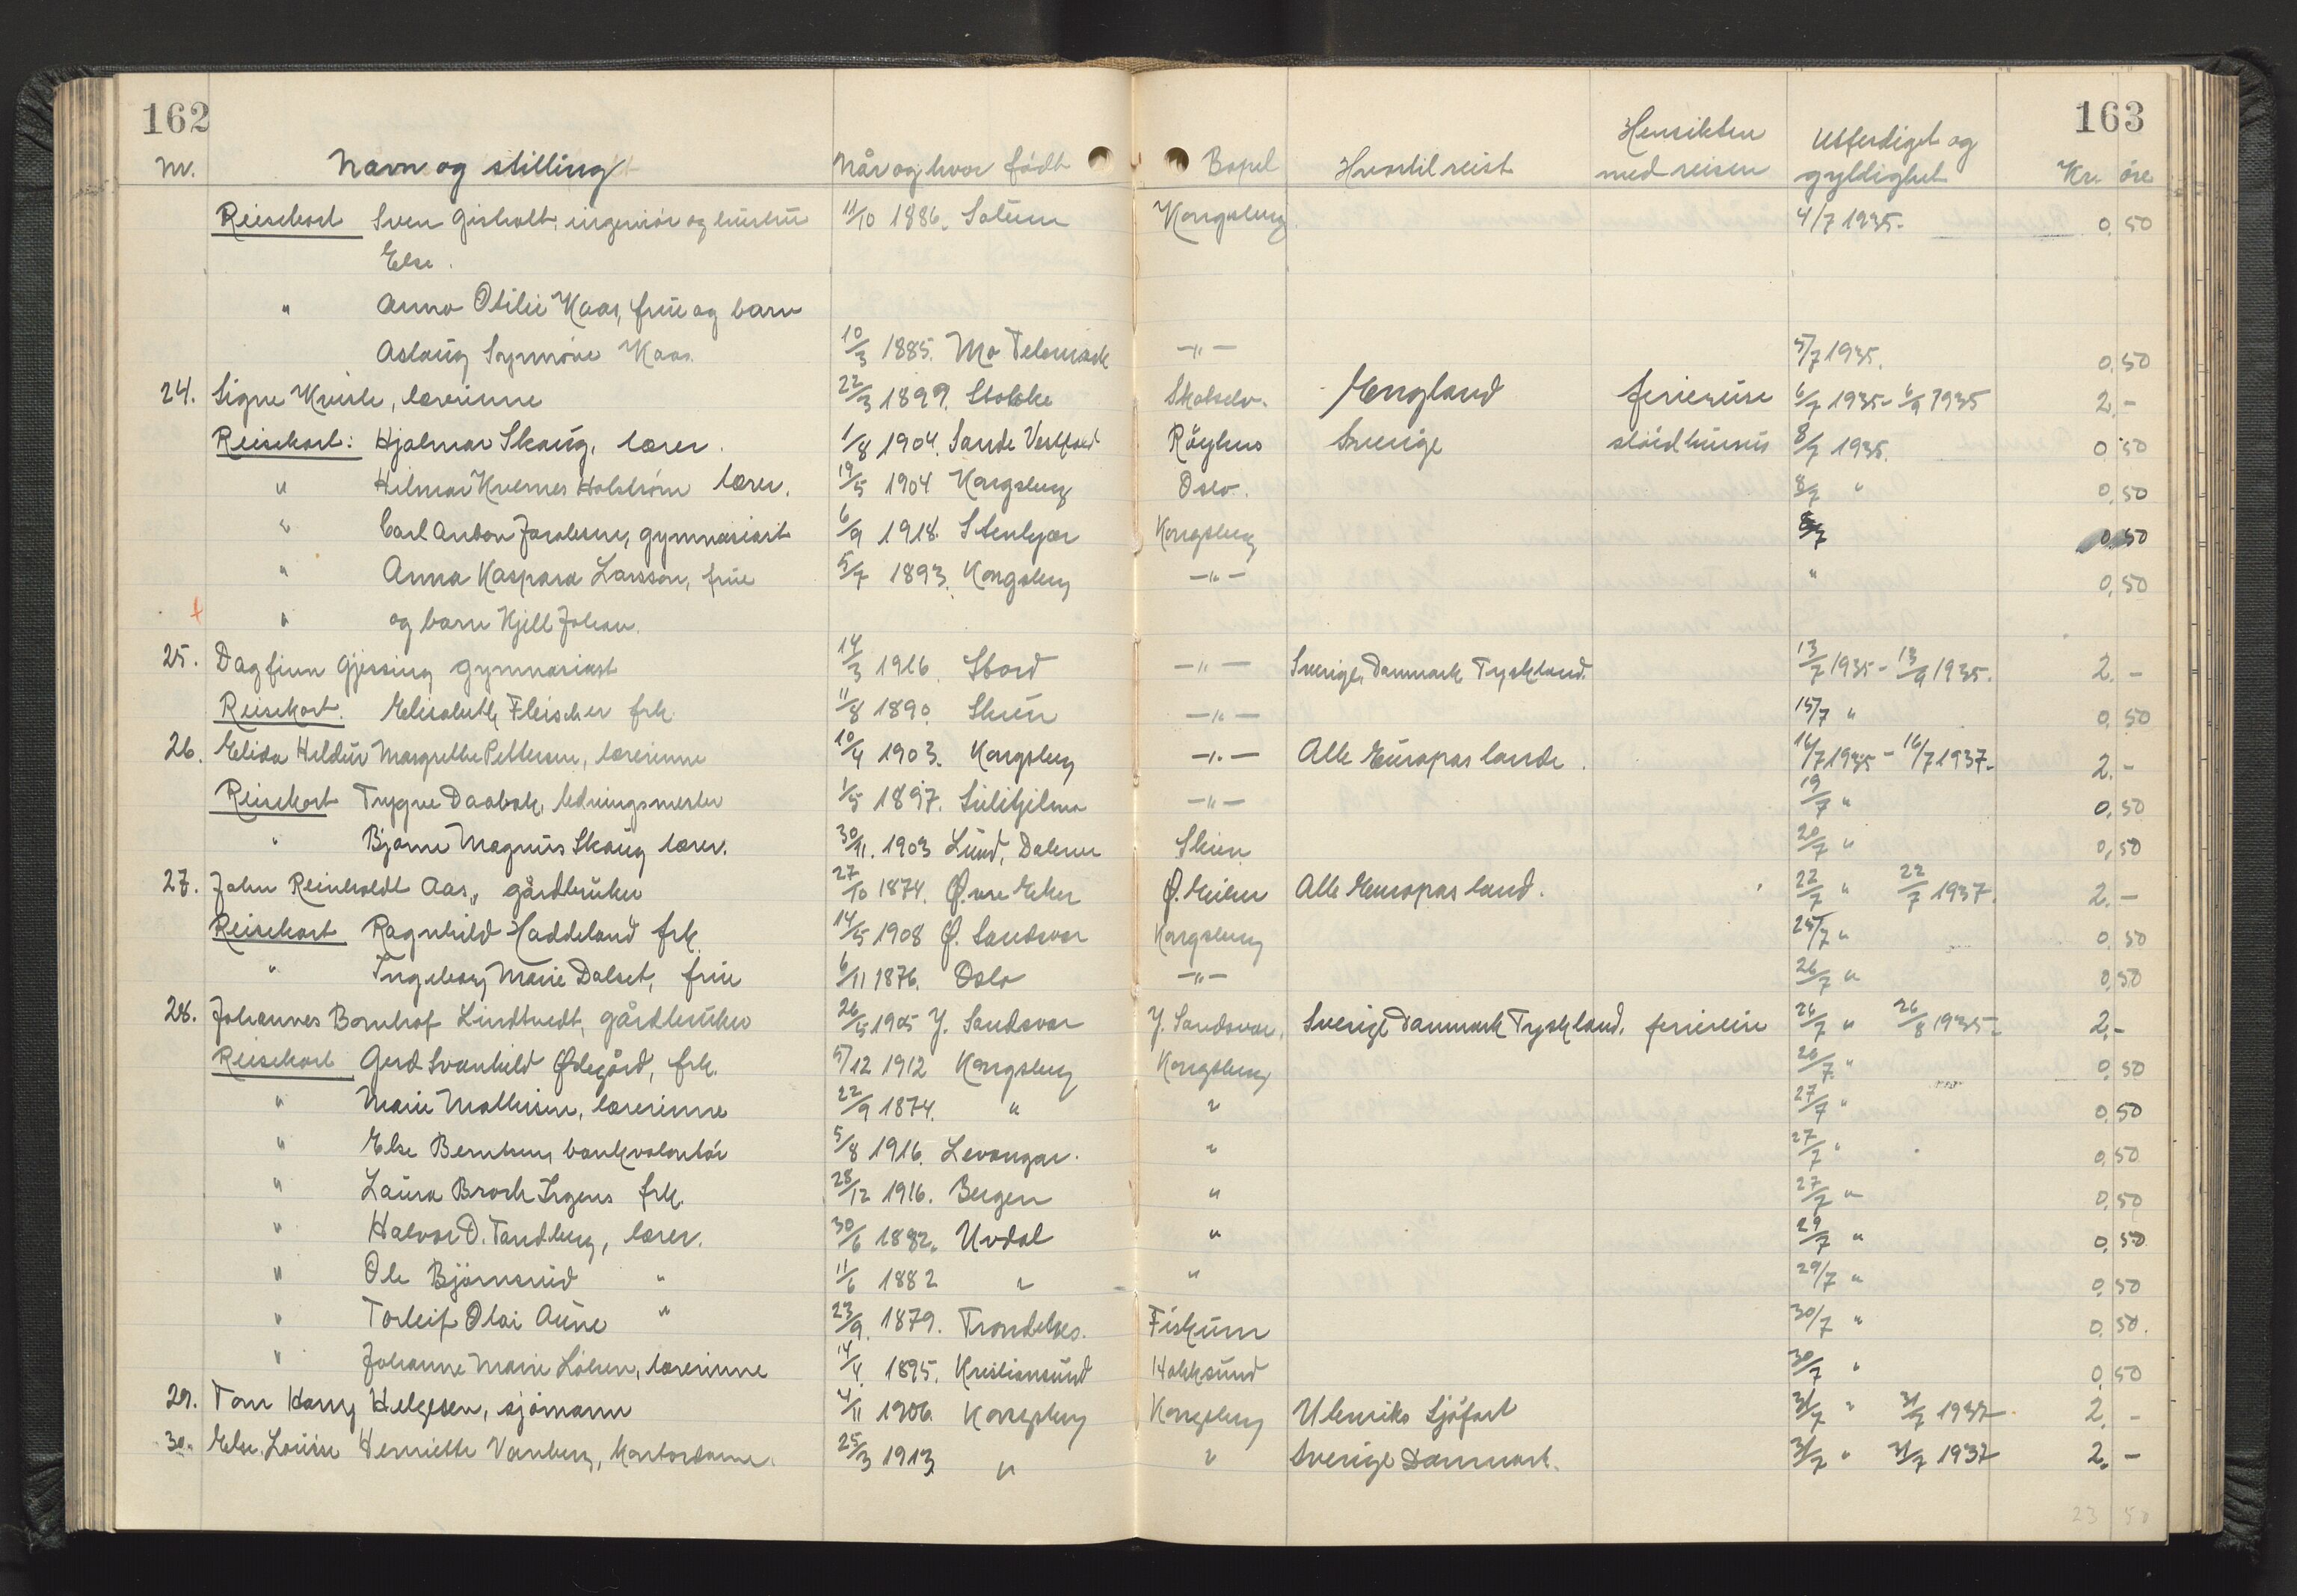 162 163
Nr. Navn og stilling Når og hvor født Bopel Hvortil reist Hensikten med reisen Utferdiget og gyldighet Kr. øre
Reisekort Sven Gisholt, ingeniør og hustru 11/10 1886. Solum Kongsberg 4/7 1935. 0,50
Else.
" Anna Otilie Kaas, frue og barn
Aslaug Synnøve Kaas. 10/3 1885. Mo Telemark -"- 5/7 1935. 0,50
24. Signe Kvisle, lærerinne 22/3 1899. Stokke Skotselv. England feriereise 6/7 1935 - 6/9 1935 2,-
Reisekort: Hjalmar Skaug, lærer. 1/8 1904. Sande Vestfold Röyken Sverige slöidkursus 8/7 1935. 0,50
" Hilmar Kvernes Holström lærer. 19/5 1904 Kongsberg Oslo. 8/7 " 0,50
" Carl Anton Jacobsen, gymnasiast 6/9 1918. Stenkjær Kongsberg 8/7 0,50
" Anna Kaspara Larsson, frue 5/7 1893. Kongsberg -"- " 0,50
" og barn Kjell Johan.
25. Dagfinn Gjessing gymnasiast 14/3 1916. Stord -"- Sverige, Danmark Tyskland. 13/7 1935 - 13/9 1935. 2,-
Reisekort. Elisabeth Fleischer frk. 11/8 1890. Skien -"- 15/7 " 0,50
26. Elida Hildur Margrethe Pettersen, lærerinne 10/4 1903. Kongsberg -"- Alle Europas lande. 16/7 1935 - 16/7 1937. 2,-
Reisekort Trygve Daabak, ledningsmester 1/5 1897. Sulitjelma -"- 19/7 " 0,50
" Bjarne Magnus Skaug lærer. 30/11. 1903 Lund, Dalerne Skien 20/7 " 0,50
27. John Reinholdt Aas, gårdbruker 27/10 1874. Øvre Eker Ø. Eiker Alle Europas land. 22/7 " 22/7 1937. 2,-
Reisekort Ragnhild Haddeland frk. 14/5 1908 Ø. Sandsvær Kongsberg 25/7 " 0,50
" Ingeborg Marie Dalset, frue 6/11 1876. Oslo -"- 26/7 " 0,50
28. Johannes Bornhof Lindtvedt, gårdbruker 26/5 1905 Y. Sandsvær Y. Sandsvær. Sverige Danmark Tyskland. feriereise 26/7 " 26/8 1935. 2,-
Reisekort Gerd Svanhild Ødegård, frk. 5/12 1912 Kongsberg Kongsberg 26/7. " 0,50
" Marie Mathisen, lærerinne 22/9 1874. " " 27/7 " 0,50
" Else Berntsen, bankvolontör 5/8 1916. Levanger. " 27/7 " 0,50
" Laura Broch Irgens frk. 28/12 1916. Bergen " 27/7 " 0,50
" Halvor D. Tandberg, lærer. 30/6 1882. Uvdal " 29/7 " 0,50
" Ole Björnsrud " 11/6 1882 " " 29/7 " 0,50
" Torleif Olai Aune " 23/9. 1879. Trondenes. Fiskum 30/7 " 0,50.
" Johanne Marie Löken, lærerinne 14/4. 1895. Kristiansund Hokksund 30/7 " 0,50
29. Tom Harry Helgesen, sjömann 4/11 1906. Kongsberg Kongsberg Utenriks Sjöfart 31/7 " 31/7 1937 2,-
30. Else Louise Henriette Vanberg, kontordame. 25/3 1913 " " Sverige Danmark. 31/7 " 31/7 1937 2,-
23 50